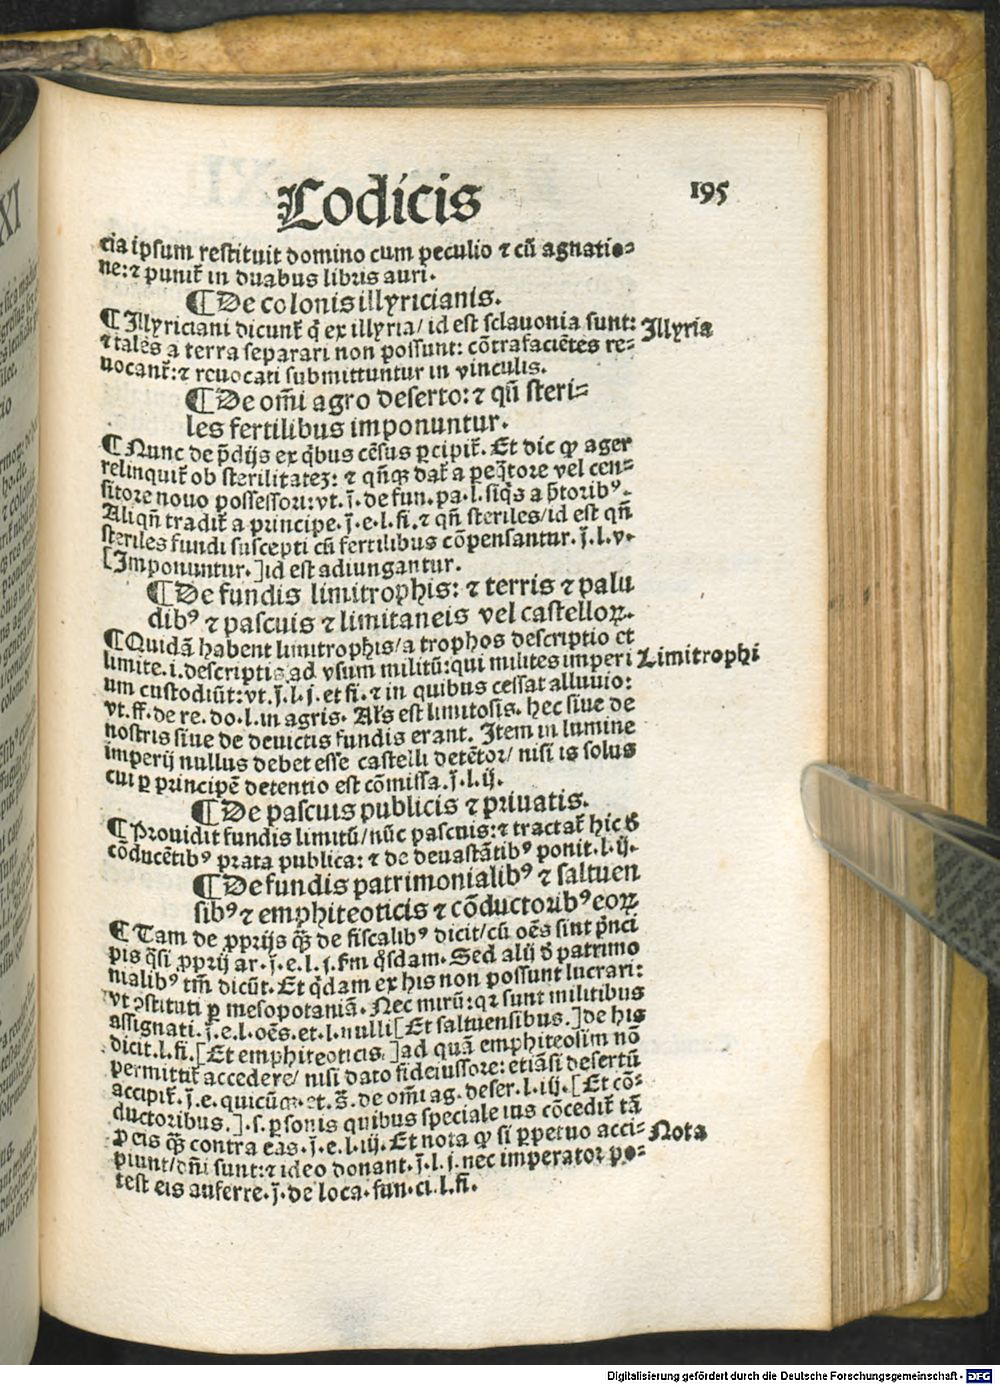 Codicis
195
cia ipsum restituit domino cum peculio ⁊ cū agnatio⸗
ne: ⁊ punit᷑ in duabus libris auri.
¶ De colonis illyricianis.
¶ Illyriciani dicunt᷑ q̇ ex illyria/ id est sclauonia sunt:
Illyria
⁊ tales a terra separari non possunt: cōtrafaciētes re⸗
uocant᷑: ⁊ reuocati submittuntur in vinculis.
¶ De om̄i agro deserto: ⁊ qn̄ steri⸗
les fertilibus imponuntur.
¶ Nunc de p̄dijs ex q̇bus cēsus ꝑcipit᷑. Et dic ꝙ ager
relinquit᷑ ob sterilitateʒ: ⁊ qn̄qʒ dat᷑ a peq̄tore vel cen⸗
sitore nouo possessori: vt. j̄. de fun. pa. l. siq̇s a p̄torib⁹.
Aliqn̄ tradit᷑ a principe. j̄. e. l. fi. ⁊ qn̄ steriles/ id est qn̄
steriles fundi suscepti cū fertilibus cōpensantur. j̄. l. v.
[Imponuntur.] id est adiungantur.
¶ De fundis limitrophis: ⁊ terris ⁊ palu
dib⁹ ⁊ pascuis ⁊ limitaneis vel castelloꝝ.
¶ Quidā habent limitrophis/ a trophos descriptio et
limite. i. descriptis ad vsum militū: qui milites imperi
Limitrophi
um custodiūt: vt. j̄. l. j. et fi. ⁊ in quibus cessat alluuio:
vt. ff. de re. do. l. in agris. Al's est limitosis. hec siue de
nostris siue de deuictis fundis erant. Item in lumine
imperij nullus debet esse castelli detētor/ nisi is solus
cui ꝑ principē detentio est cōmissa. j̄. l. ij.
¶ De pascuis publicis ⁊ priuatis.
¶ Prouidit fundis limitū/ nūc pascuis: ⁊ tractat᷑ hic d̄
cōducētib⁹ prata publica: ⁊ de deuastātib⁹ ponit. l. ij.
¶ De fundis patrimonialib⁹ ⁊ saltuen
sib⁹ ⁊ emphiteoticis ⁊ cōductorib⁹ eoꝝ
¶ Tam de ꝓprijs q̄ʒ de fiscalib⁹ dicit/ cū oēs sint p̄nci
pis q̇si ꝓprij ar. j̄. e. l. j. f̄m q̇sdam. Sed alij d̄ patrimo
nialib⁹ tm̄ dicūt. Et q̇dam ex his non possunt lucrari:
vt ↄstituti ꝑ mesopotaniā. Nec mirū: qꝛ sunt militibus
assignati. j̄. e. l. oēs. et. l. nulli [Et saltuensibus.] de his
dicit. l. fi. [Et emphiteoticis.] ad quā emphiteosim nō
permittit᷑ accedere/ nisi dato fideiussore: etiāsi desertū
accipit᷑. j̄. e. quicūq. et. s̄. de om̄i ag. deser. l. iij. [Et cō⸗
ductoribus.]. s. ꝑsonis quibus speciale ius cōcedit᷑ tā
ꝑ eis q̄ʒ contra eas. j̄. e. l. iij. Et nota ꝙ si ꝑpetuo acci⸗
Nota
piunt/ dn̄i sunt: ⁊ ideo donant. j̄. l. j. nec imperator po⸗
test eis auferre. j̄. de loca. fun. ci. l. fi.
Digitalisierung gefördert durch die Deutsche Forschungsgemeinschaft - DFG